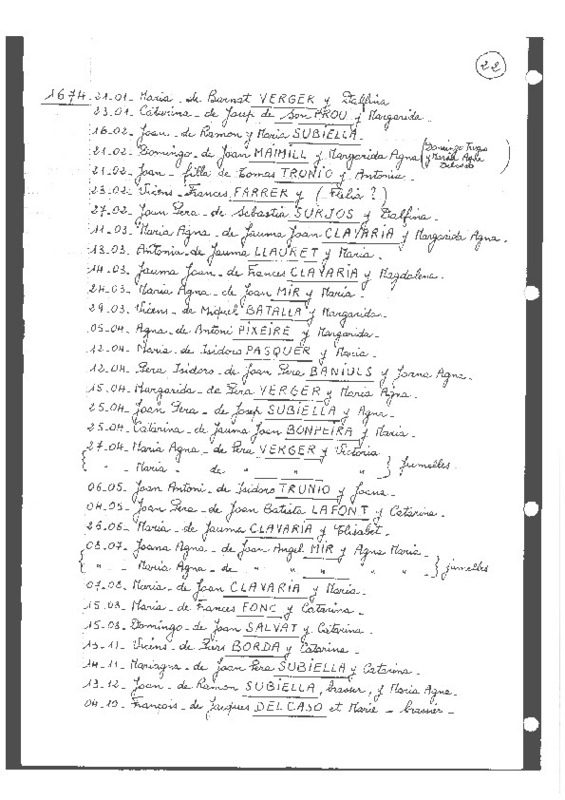 22
1674 - 21.01 - Maria - de Bernat VERGER y Dalfina
23.01 - Caterina - de Josep de Son PROU y Margarida -
16-02 - Joan - de Ramon y Maria SUBIELLA
21-02 - Domingo - de Joan MAIMILL y Margarida Agna (Domingo
y Maria Agna
21-02 - Joan - filla de Tomas TRUNIO y Antonia -
23-02 - Vicens - Frances FARRER y ( ?)
27-02 - Joan Pera - de Sebastia SURJOS y Dalfina -
11-03 - Maria Agna - de Jauma Joan CLAVARIA y Margarida Agna.
13.03 - Antonia - de Jauma LLAURET y Maria -
14-03 - Jauma Joan - de Frances CLAVARIA y Magdalena.
24-03 - Maria Agna - de Joan MIR y Maria -
29.03 - Vicens - de Miquel BATALLA y Margarida.
05-04 - Agna - de Antoni PIXEIRE y Margarida -
12-04 - Maria - de Isidoro PASQUER y Maria -
12-04 - Pera Isidoro - de Joan Pera BANIULS y Agna -
15-04 - Margarida - de Pera VERGER y Maria Agna -
25-04 - Joan Pera - de Josep SUBIELLA y Agna -
25-04 - Catarina - de Jauma Joan BONPEIRA y Maria -
27-04 - Maria Agna - de Pera VERGER y Victoria
" - Maria - de " " " } Jumelles.
06-05 - Joan Antoni - de Isidoro TRUNIO y Joana -
04-05 - Joan Pera - de Joan Batista LAFONT y Catarina -
26-06 - Maria - de Jauma CLAVARIA y Elisabet -
08-07 - Joana Agna - de Joan Angel MIR y Agna Maria -
" - Maria Agna - de " " " " " } jumelles
07-08 - Maria - de Joan CLAVARIA y Maria -
15-03 - Maria - de Frances FONC y Catarina -
15-03 - Domingo - de Joan SALVAT y Catarina -
13-11 - Vicens - de BORDA y Catarina -
14-11 - Mariagna - de Joan Pera SUBIELLA y Catarina -
13-12 - Joan - de Ramon SUBIELLA, brasier, y Maria Agna -
04-10 - François - de Jacques DEL CASO et Marie - brassier -